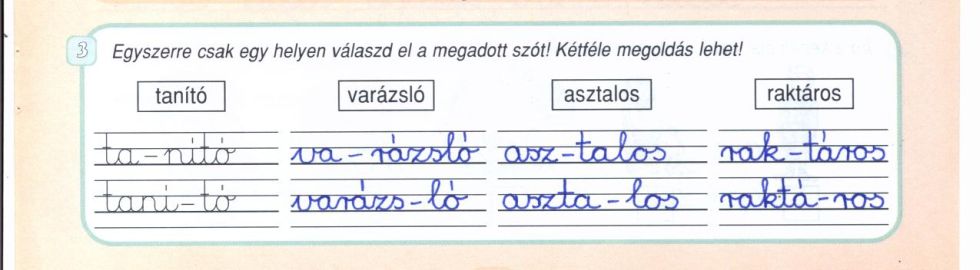 3 Egyszerre csak egy helyen válaszd el a megadott szót! Kétféle megoldás lehet!
tanító varázsló asztalos raktáros
ta-nító va-rázsló asz-talos rak-táros
taní-tó varázs-ló aszta-los raktá-ros